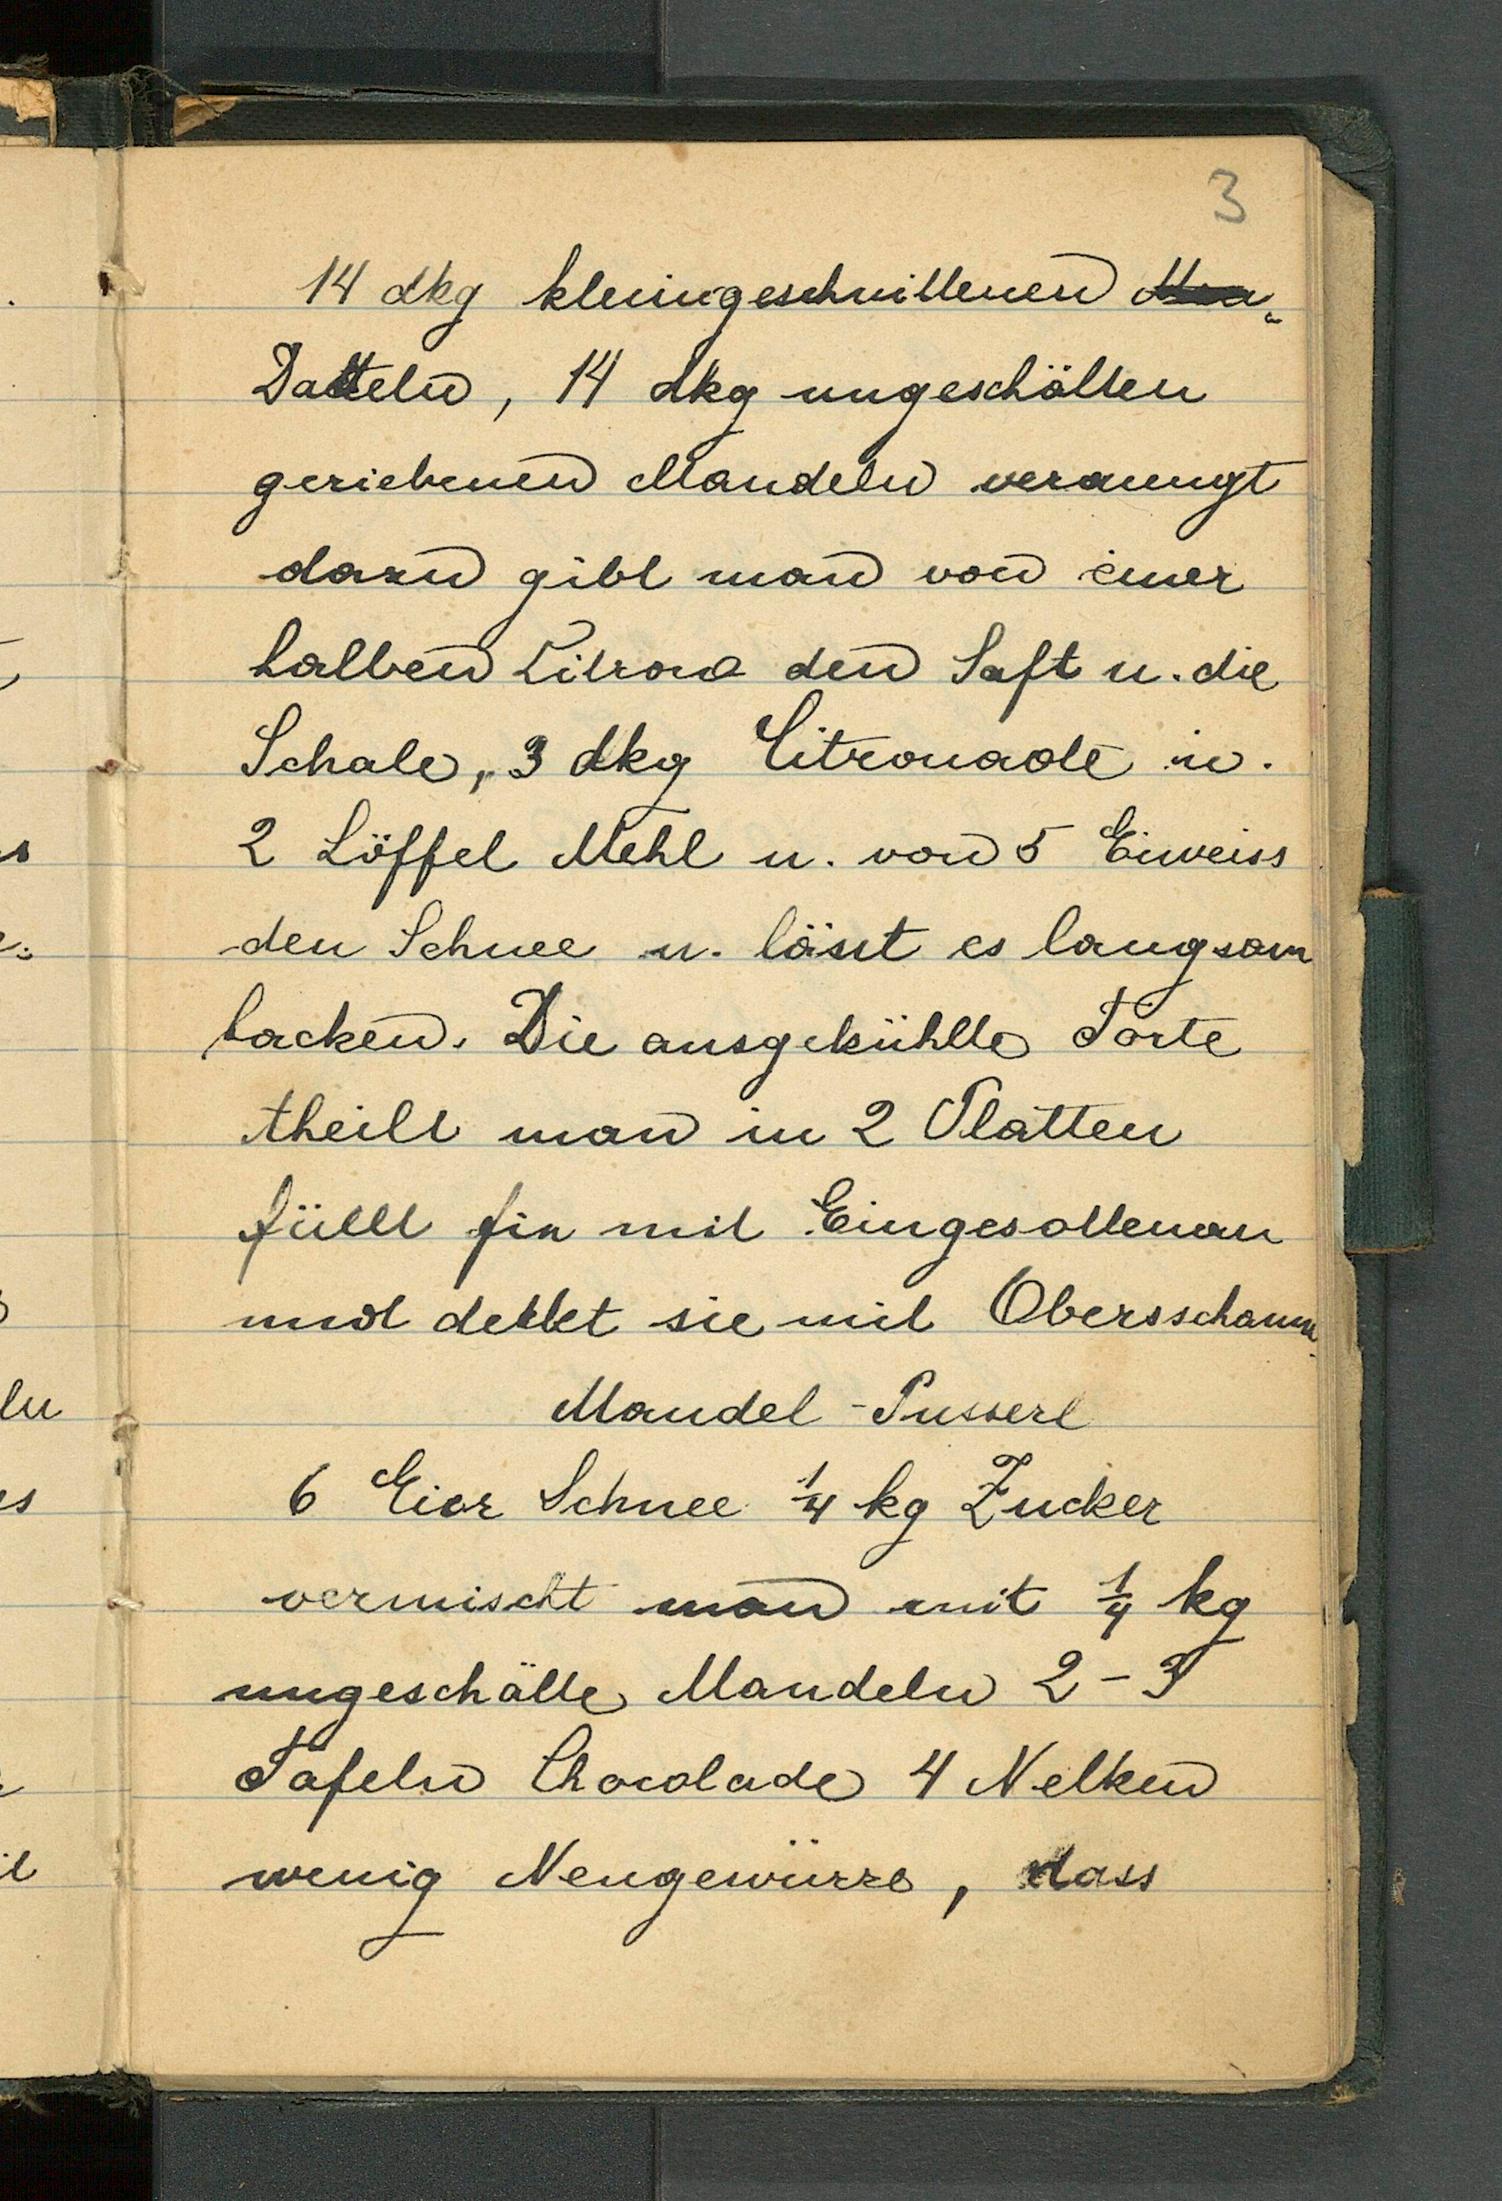 3
14 dkg kleingeschnittenen
Datteln, 14 dkg ungeschälten
geriebenen Mandeln vermengt
dazu gibt man von einer
halben Citrone den Saft u. die
Schale, 3 dkg Citronade u.
2 Löffel Mehl u. von 5 Eiweiss
den Schnee u. lässt es langsam
backen. Die ausgekühlte Torte
theilt man in 2 Platten
füllt sie mit Eingesottenen
und decket sie mit Obersschaum.
Mandel-Pusserl
6 Eier Schnee ¼ kg Zucker
vermischt man mit ¼ kg
ungeschälte Mandeln 2-3
Tafeln Chocolade 4 Nelken
wenig Neugewürze, dass